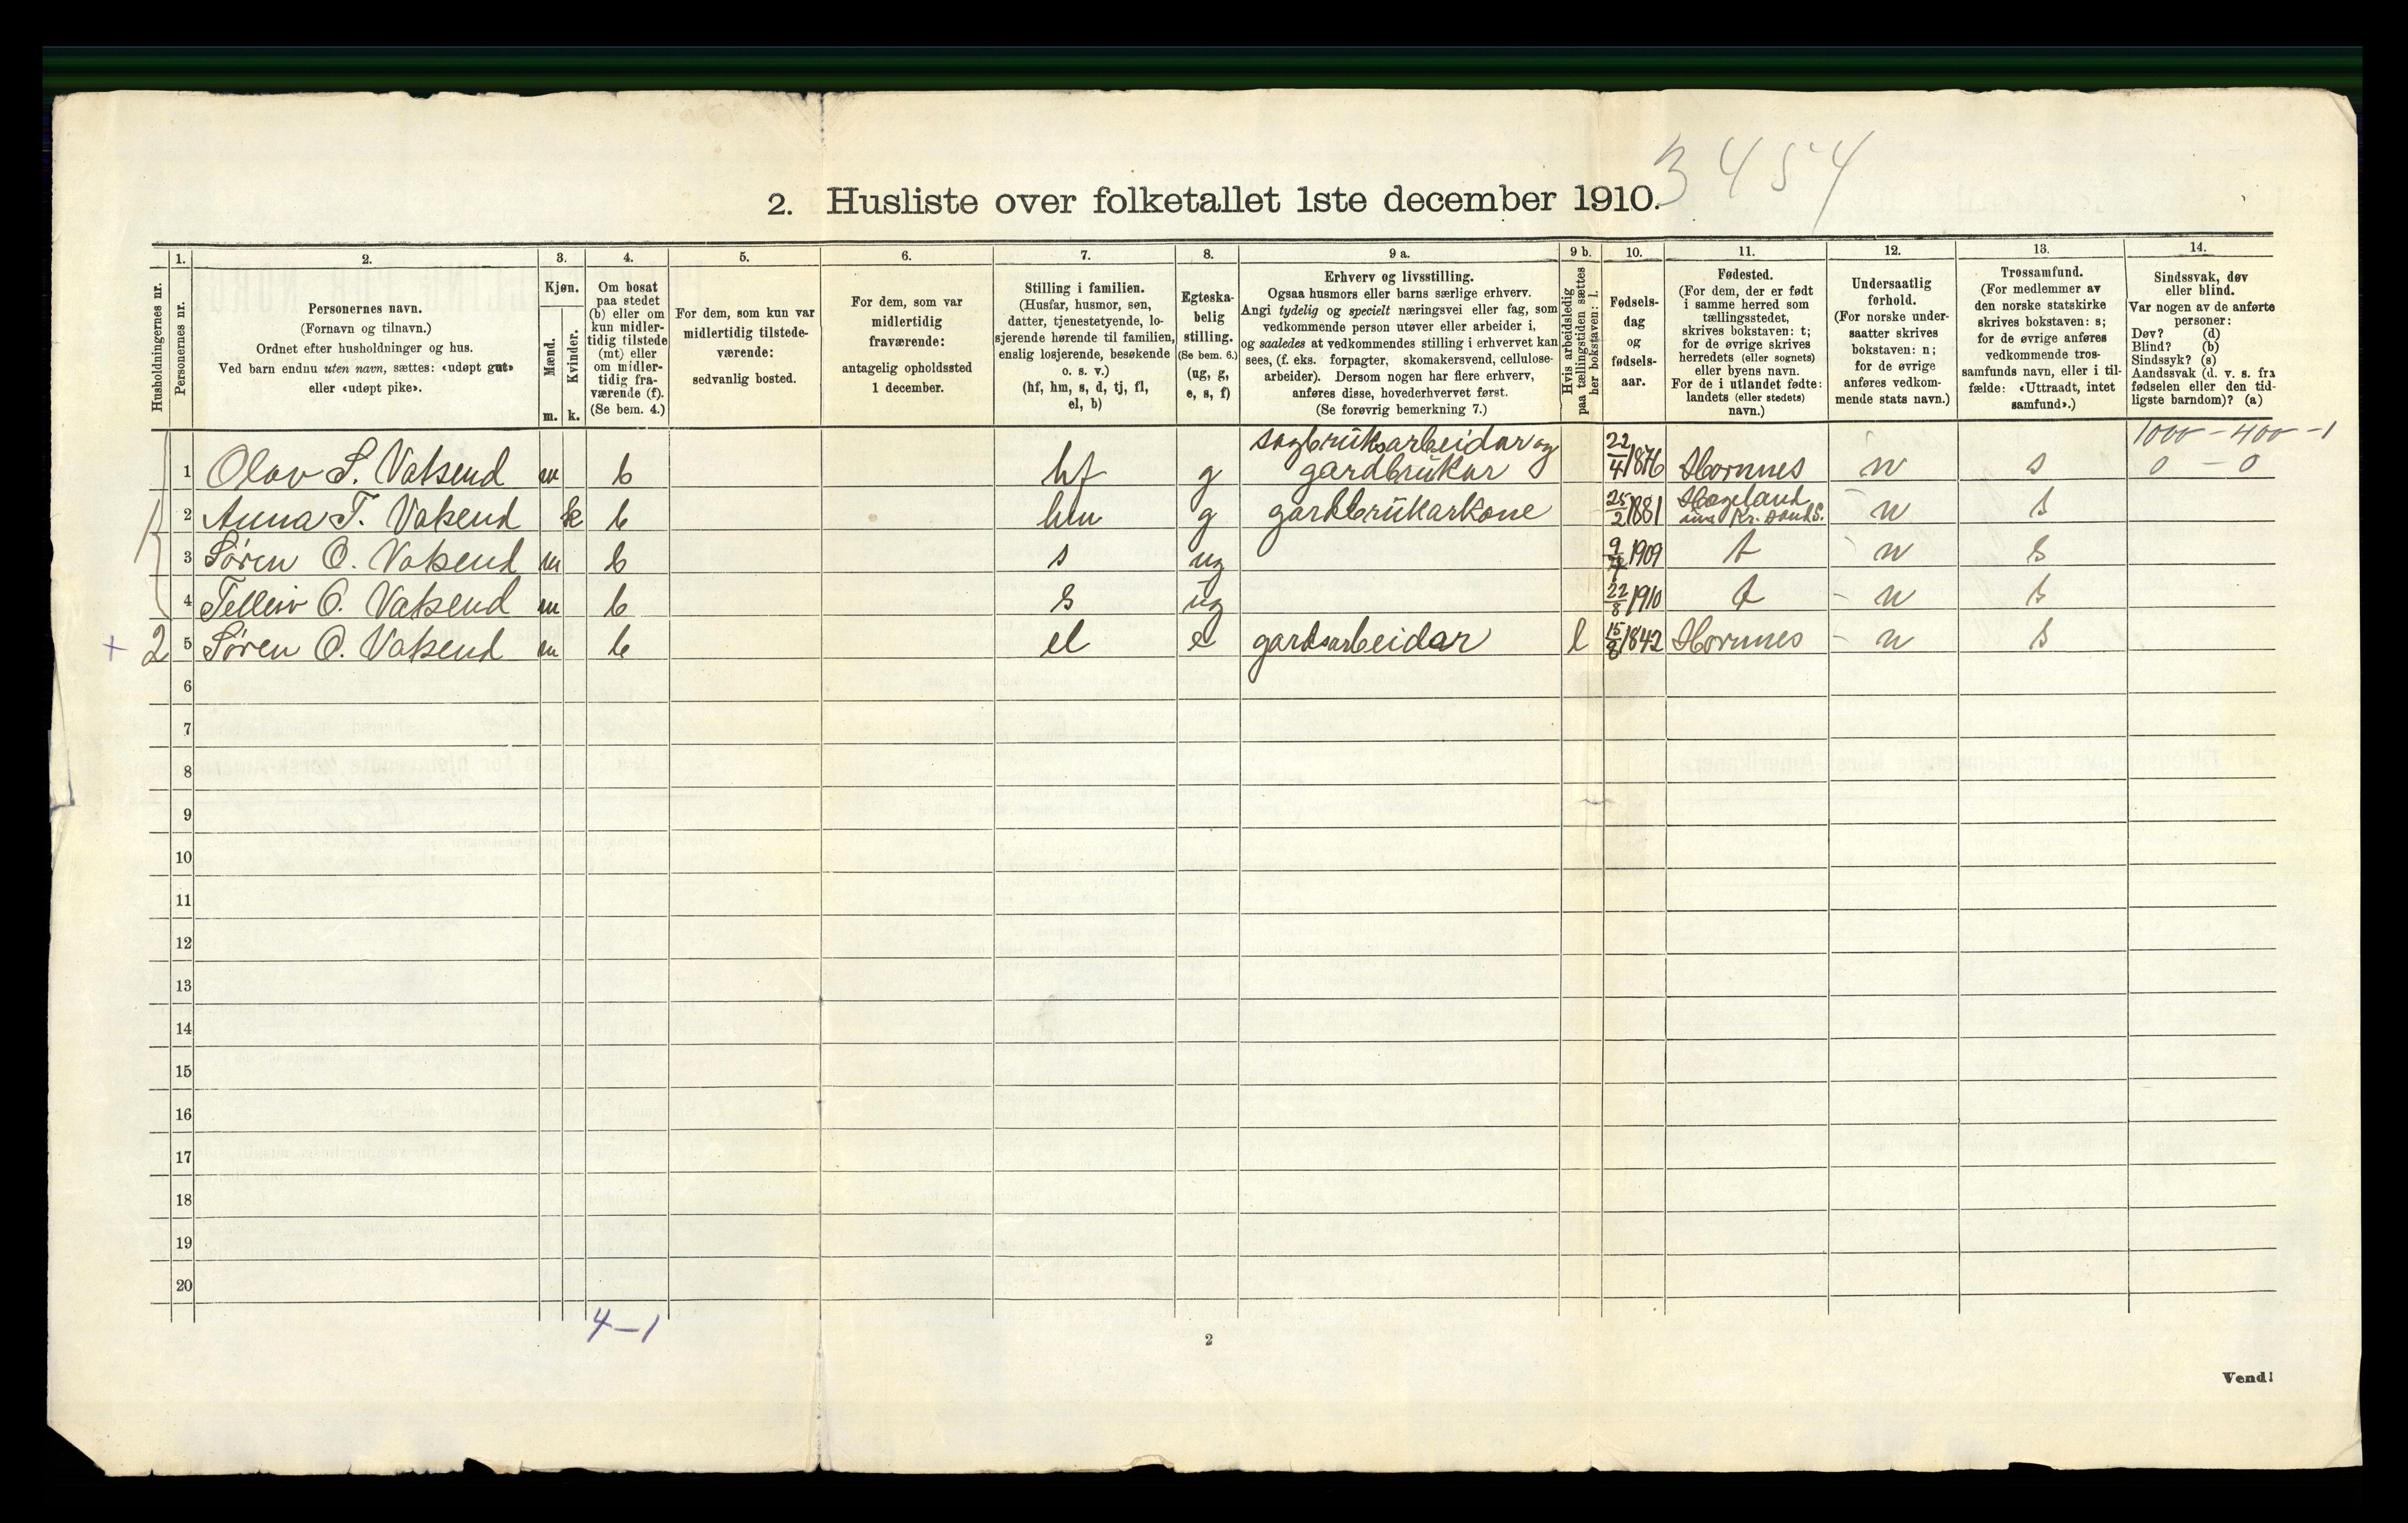 3454
2. Husliste over folketallet 1ste december 1910.
Husholdningernes nr.
1.
Personernes nr.
2.
Personernes navn.
(Fornavn og tilnavn.)
Ordnet efter husholdninger og hus.
Ved barn endnu uten navn, sættes: «udøpt gut»
eller «udøpt pike».
3.
Kjøn.
Mænd.
Kvinder.
m. k.
4.
Om bosat
paa stedet
(b) eller om
kun midler-
tidig tilstede
(mt) eller
om midler-
tidig fra-
værende (f).
(Se bem. 4.)
5.
For dem, som kun var
midlertidig tilstede-
værende:
sedvanlig bosted.
6.
For dem, som var
midlertidig
fraværende:
antagelig opholdssted
1 december.
7.
Stilling i familien.
(Husfar, husmor, søn,
datter, tjenestetyende, lo-
sjerende hørende til familien,
enslig losjerende, besøkende
o. s. v.)
(hf, hm, s, d, tj, fl,
el, b)
8.
Egteska-
belig
stilling.
(Se bem. 6.)
(ug, g,
e, s, f)
9 a.
Erhverv og livsstilling.
Ogsaa husmors eller barns særlige erhverv.
Angi tydelig og specielt næringsvei eller fag, som
vedkommende person utøver eller arbeider i,
og saaledes at vedkommendes stilling i erhvervet kan
sees, (f. eks. forpagter, skomakersvend, cellulose-
arbeider). Dersom nogen har flere erhverv,
anføres disse, hovederhvervet først.
(Se forøvrig bemerkning 7.)
9 b.
Hvis arbeidsledig
paa tællingstiden sættes
her bokstaven: l.
10.
Fødsels-
dag
og
fødsels-
aar.
11.
Fødested.
(For dem, der er født
i samme herred som
tællingsstedet,
skrives bokstaven: t;
for de øvrige skrives
herredets (eller sognets)
eller byens navn.
For de i utlandet fødte:
landets (eller stedets)
navn.)
12.
Undersaatlig
forhold.
(For norske under-
saatter skrives
bokstaven: n;
for de øvrige
anføres vedkom-
mende stats navn.)
13.
Trossamfund.
(For medlemmer av
den norske statskirke
skrives bokstaven: s;
for de øvrige anføres
vedkommende tros-
samfunds navn, eller i til-
fælde: «Uttraadt, intet
samfund».)
14.
Sindssvak, døv
eller blind.
Var nogen av de anførte
personer:
Døv? (d)
Blind? (b)
Sindssyk? (s)
Aandssvak (d. v. s. fra
fødselen eller den tid-
ligste barndom)? (a)
sagbruksarbeidar og 1000 - 400 - 1
1 Olav S. Vatsend m b hf g gardbrukar 22/4 1876 Hornnes n s 0 - 0
1 2 Anna T. Vatsend k b hm g gardbrukarkone 25/2 1881 Hægeland n s
3 Søren O. Vatsend m b s ug 1909 t n s
4 Telleiv O. Vatsend m b s ug 22/8 1910 t n s
+ 2 5 Søren O. Vatsend m b el e gardsarbeidar l 15/8 1842 Hornnes n s
6
7
8
9
10
11
12
13
14
15
16
17
18
19
20
4-1
2
Vend!